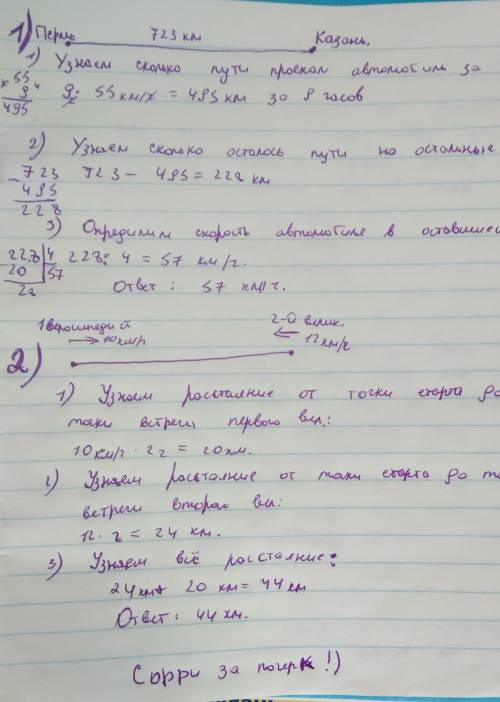 1) Пермь 723 км Казань.
1) Узнаем сколько пути проехал автомобиль за
× 55
9
495
9 · 55 км/ч = 495 км за 9 часов
2) Узнаем сколько осталось пути на остальные
- 723
495
228
723 - 495 = 228 км
3) Определим скорость автомобиля в оставшией
228 4
20 57
28
228 : 4 = 57 км/ч.
Ответ : 57 км/ч.
1 велосипеди й 2-й велик.
→ 10км/ч ← 12км/ч
2)
1) Узнаем расстаяние от точки старта до
таки встречи первого вел:
10 км/г · 2г = 20км.
2) Узнаем расстаяние от таки старта до то
встречи второго вел:
12 · 2 = 24 км.
3) Узнаем всё расстаяние:
24км+ 20 км = 44 км
Ответ : 44 км.
Сорри за почерк !)